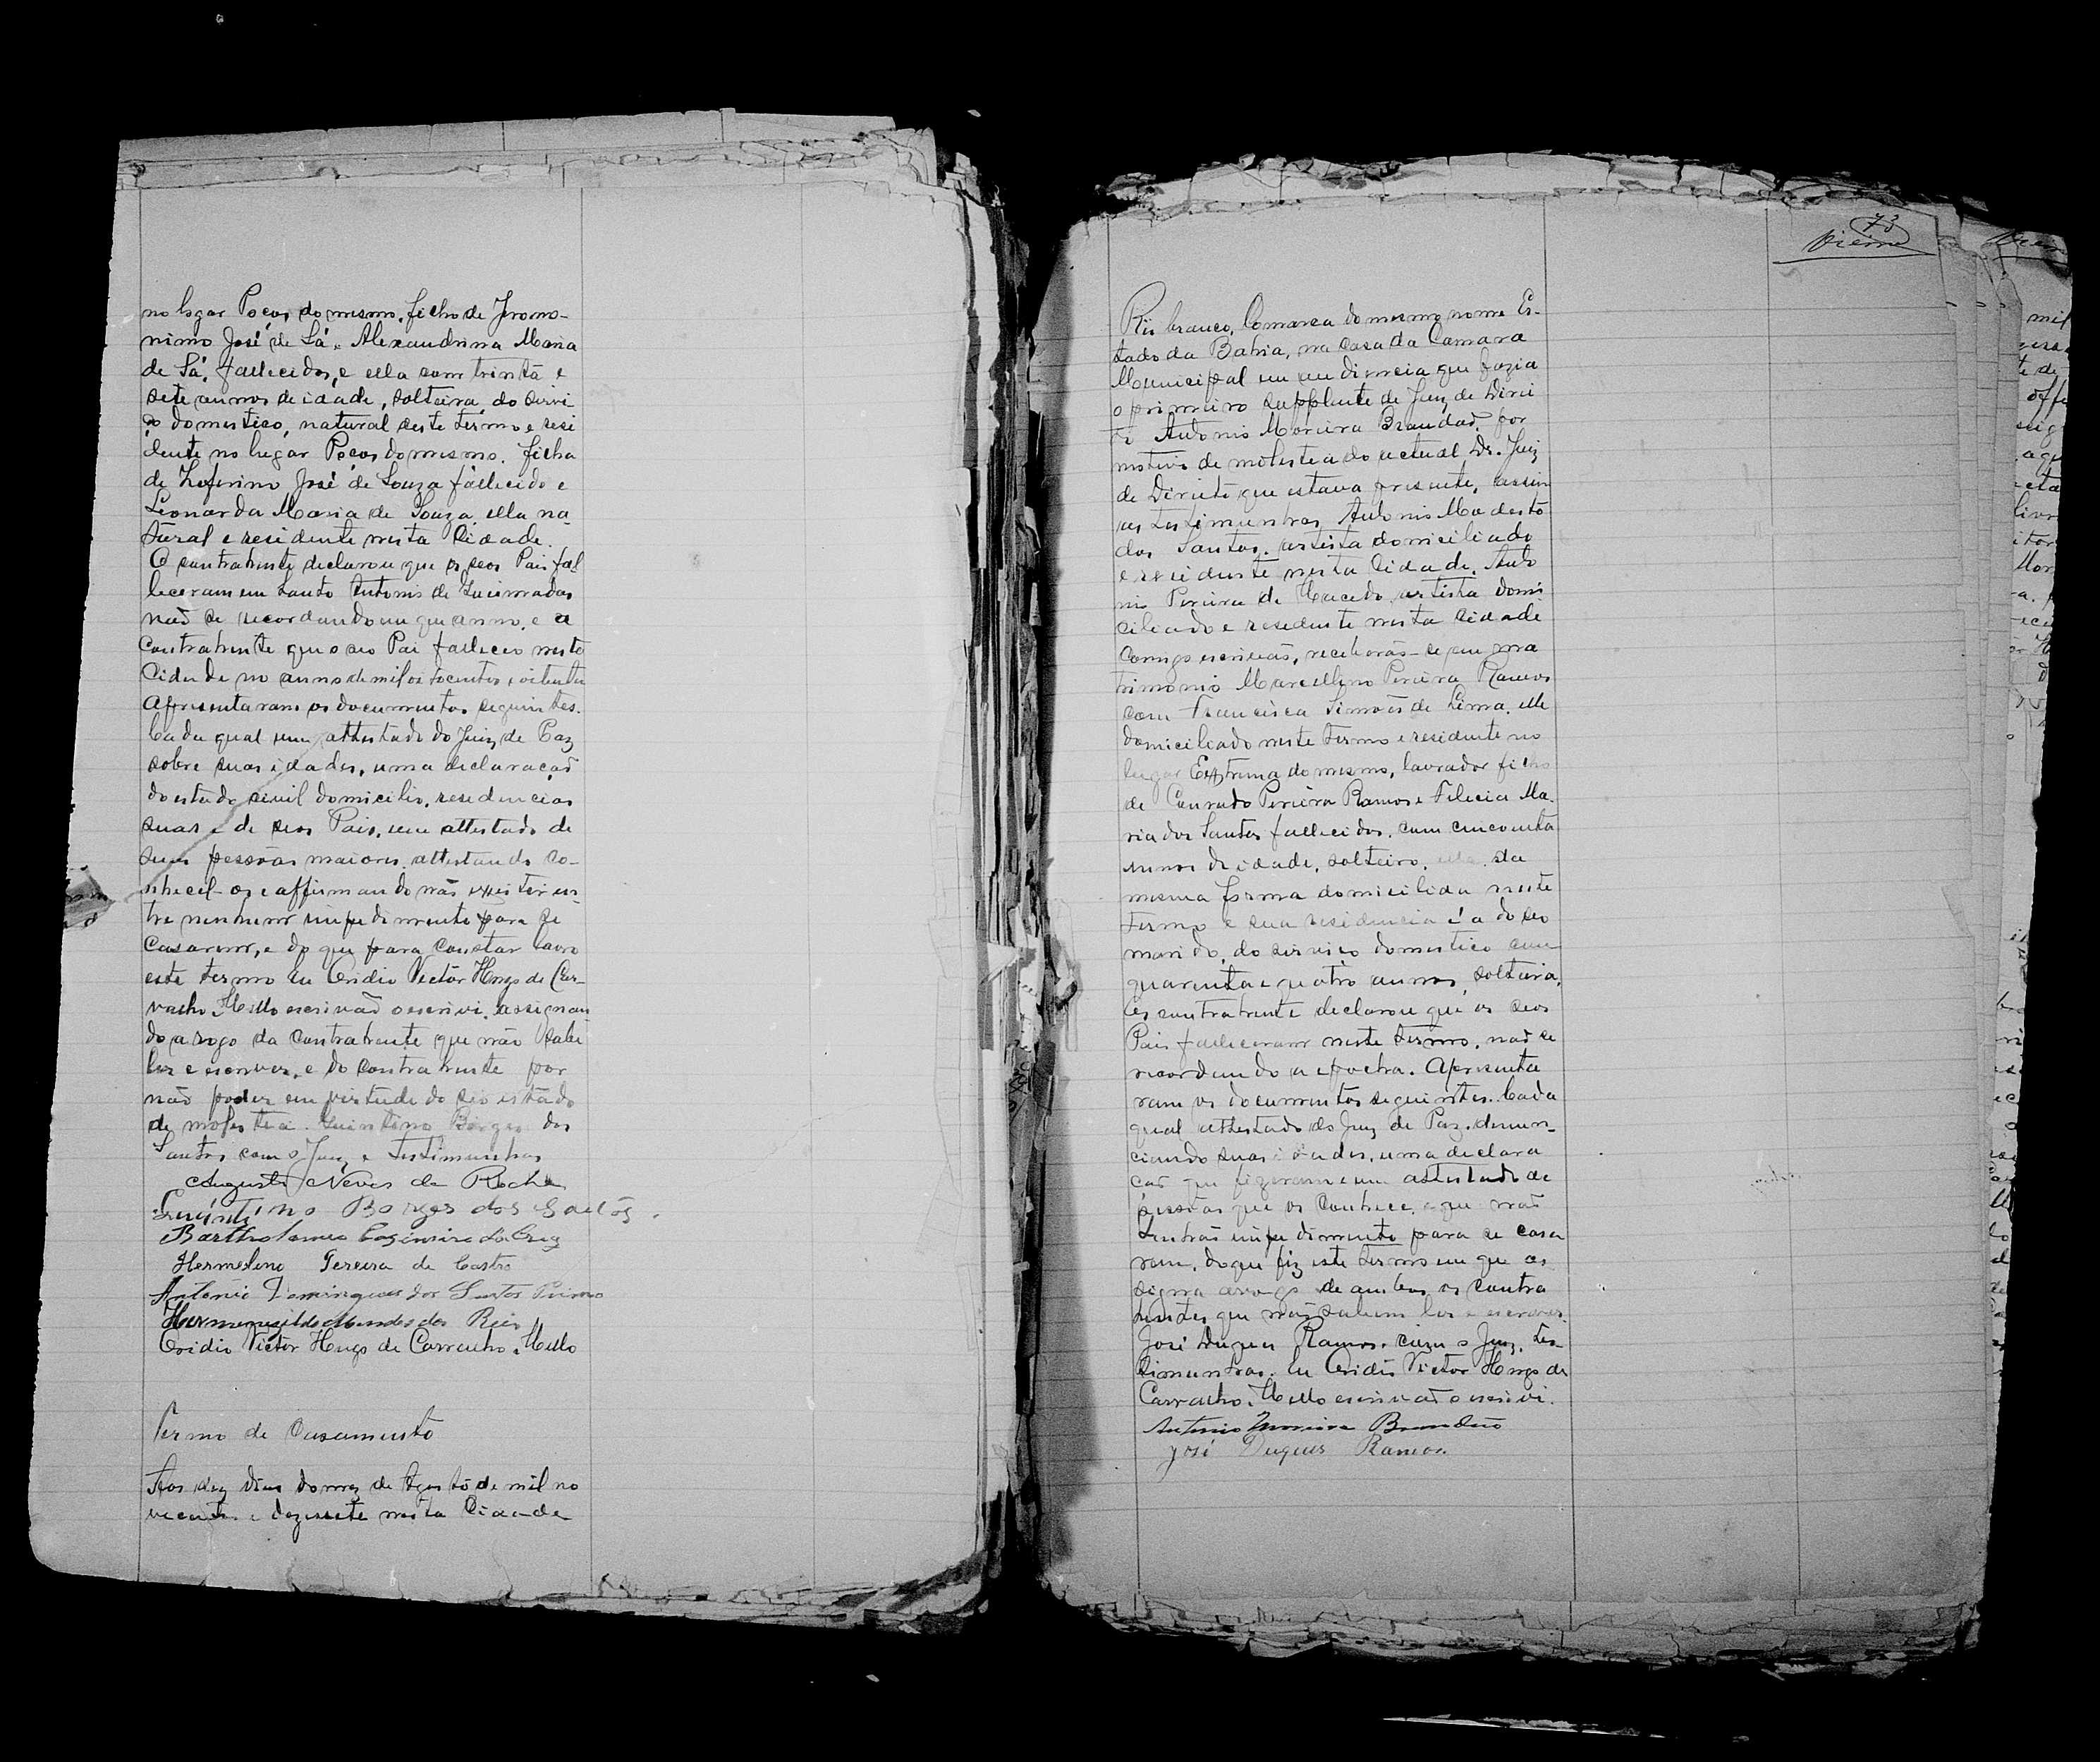 no logar Poços do mesmo, filho de Jeromo-
nimo José de Sá e Alexandrina Maria
de Sá, fallecidos, e ella com trinta e
sete annos de idade, solteira, do servi
ço domestico, natural deste termo e resi
dente no lugar Poços do mesmo. filha
de Zeferino José de Souza fallecido e
Leonarda Maria de Souza, ella na-
tural e residente nesta Cidade.
O contrahente declarou que os seos Pais fal
leceram em Santo Antonio de
não se recordando em que anno, e a
contrahente que o seo Pai falleceo nesta
Cidade no anno de mil oitocentos e oitenta
Apresentaram os documentos seguintes.
Cada qual um attestado do Juiz de Paz
sobre suas idades, uma declaração
do estado civil domicilio, residencias
suas e de seos Pais, um attestado de
duas pessôas maiores, attestando co-
nhecel-os e affirmando não existir en-
tre nenhum impedimento para se
casarem, e do que para constar lavro
este termo Eu Ovidio Victor Hugo de Car-
valho Mello escrivão o escrivi. assignan
do a rogo da contrahente que não sabe
ler e escrever, e do contrahente por
não poder em virtude do seo estado
de molestia Quintino Borges dos
Santos com o Juiz e testimunhas
Augusto Neves da Rocha
Quintino Borges dos Santos.
Bartholomeo Casimiro da Cruz
Hermelino Pereira de Castro
Antonio Domingues dos Santos Primo
Hermenegildo Mendes dos Reis
Ovidio Victor Hugo de Carvalho e Mello
Termo de Casamento
Aos dez dias do mez de Agosto de mil no
vecentos e dezessete nesta Cidade
73
Vieira
Rio branco, Comarca do mesmo nome Es-
tado da Bahia, na casa da Camara
Municipal em audiencia que fazia
o primeiro supplente de Juiz de Direi
to Antonio Moreira Brandão, por
motivo de molestea do actual Dr. Juiz
de Direito que estava presente, assim
as testimunhas Antonio Modesto
dos Santos, artista domiciliado
e residente nesta Cidade, Anto
nio Pereira de Macedo, artista domi
ciliado e residente nesta cidade
comigo escrivão, receberão-se em ma
trimonio Marcellino Pereira Ramos
com Francisca Simões de Lima, elle
domiciliado neste termo e residente no
lugar Extrema do mesmo, lavrador filho
de Conrado Pereira Ramos e Felecia Ma-
ria dos Santos fallecidos, com cincoenta
annos de idade, solteiro, ella da
mesma forma domicilida neste
termo e sua residencia é a do seo
marido, do serviço domestico com
quarenta e quatro annos, solteira,
contrahente declarou que os seos
Pais falleceram neste termo, não se
recordando a epocha. Apresenta
ram os documentos seguintes. Cada
qual attestado do Juiz de Paz. denun-
ciando suas idades, uma declara
ção que fizeram e um attestado de
pessôas que os conhece, e que não
tenhão impedimento para se casa
rem, do que fiz este termo em que as
signa a rogo de ambos os contra
hentes que não sabem ler e escrever
José Duques Ramos. com o Juiz, tes-
timunhas. Eu Ovidio Victor Hugo de
Carvalho e Mello escrivão o escrivi.
Antonio Moreira Brandão
José Duques Ramos